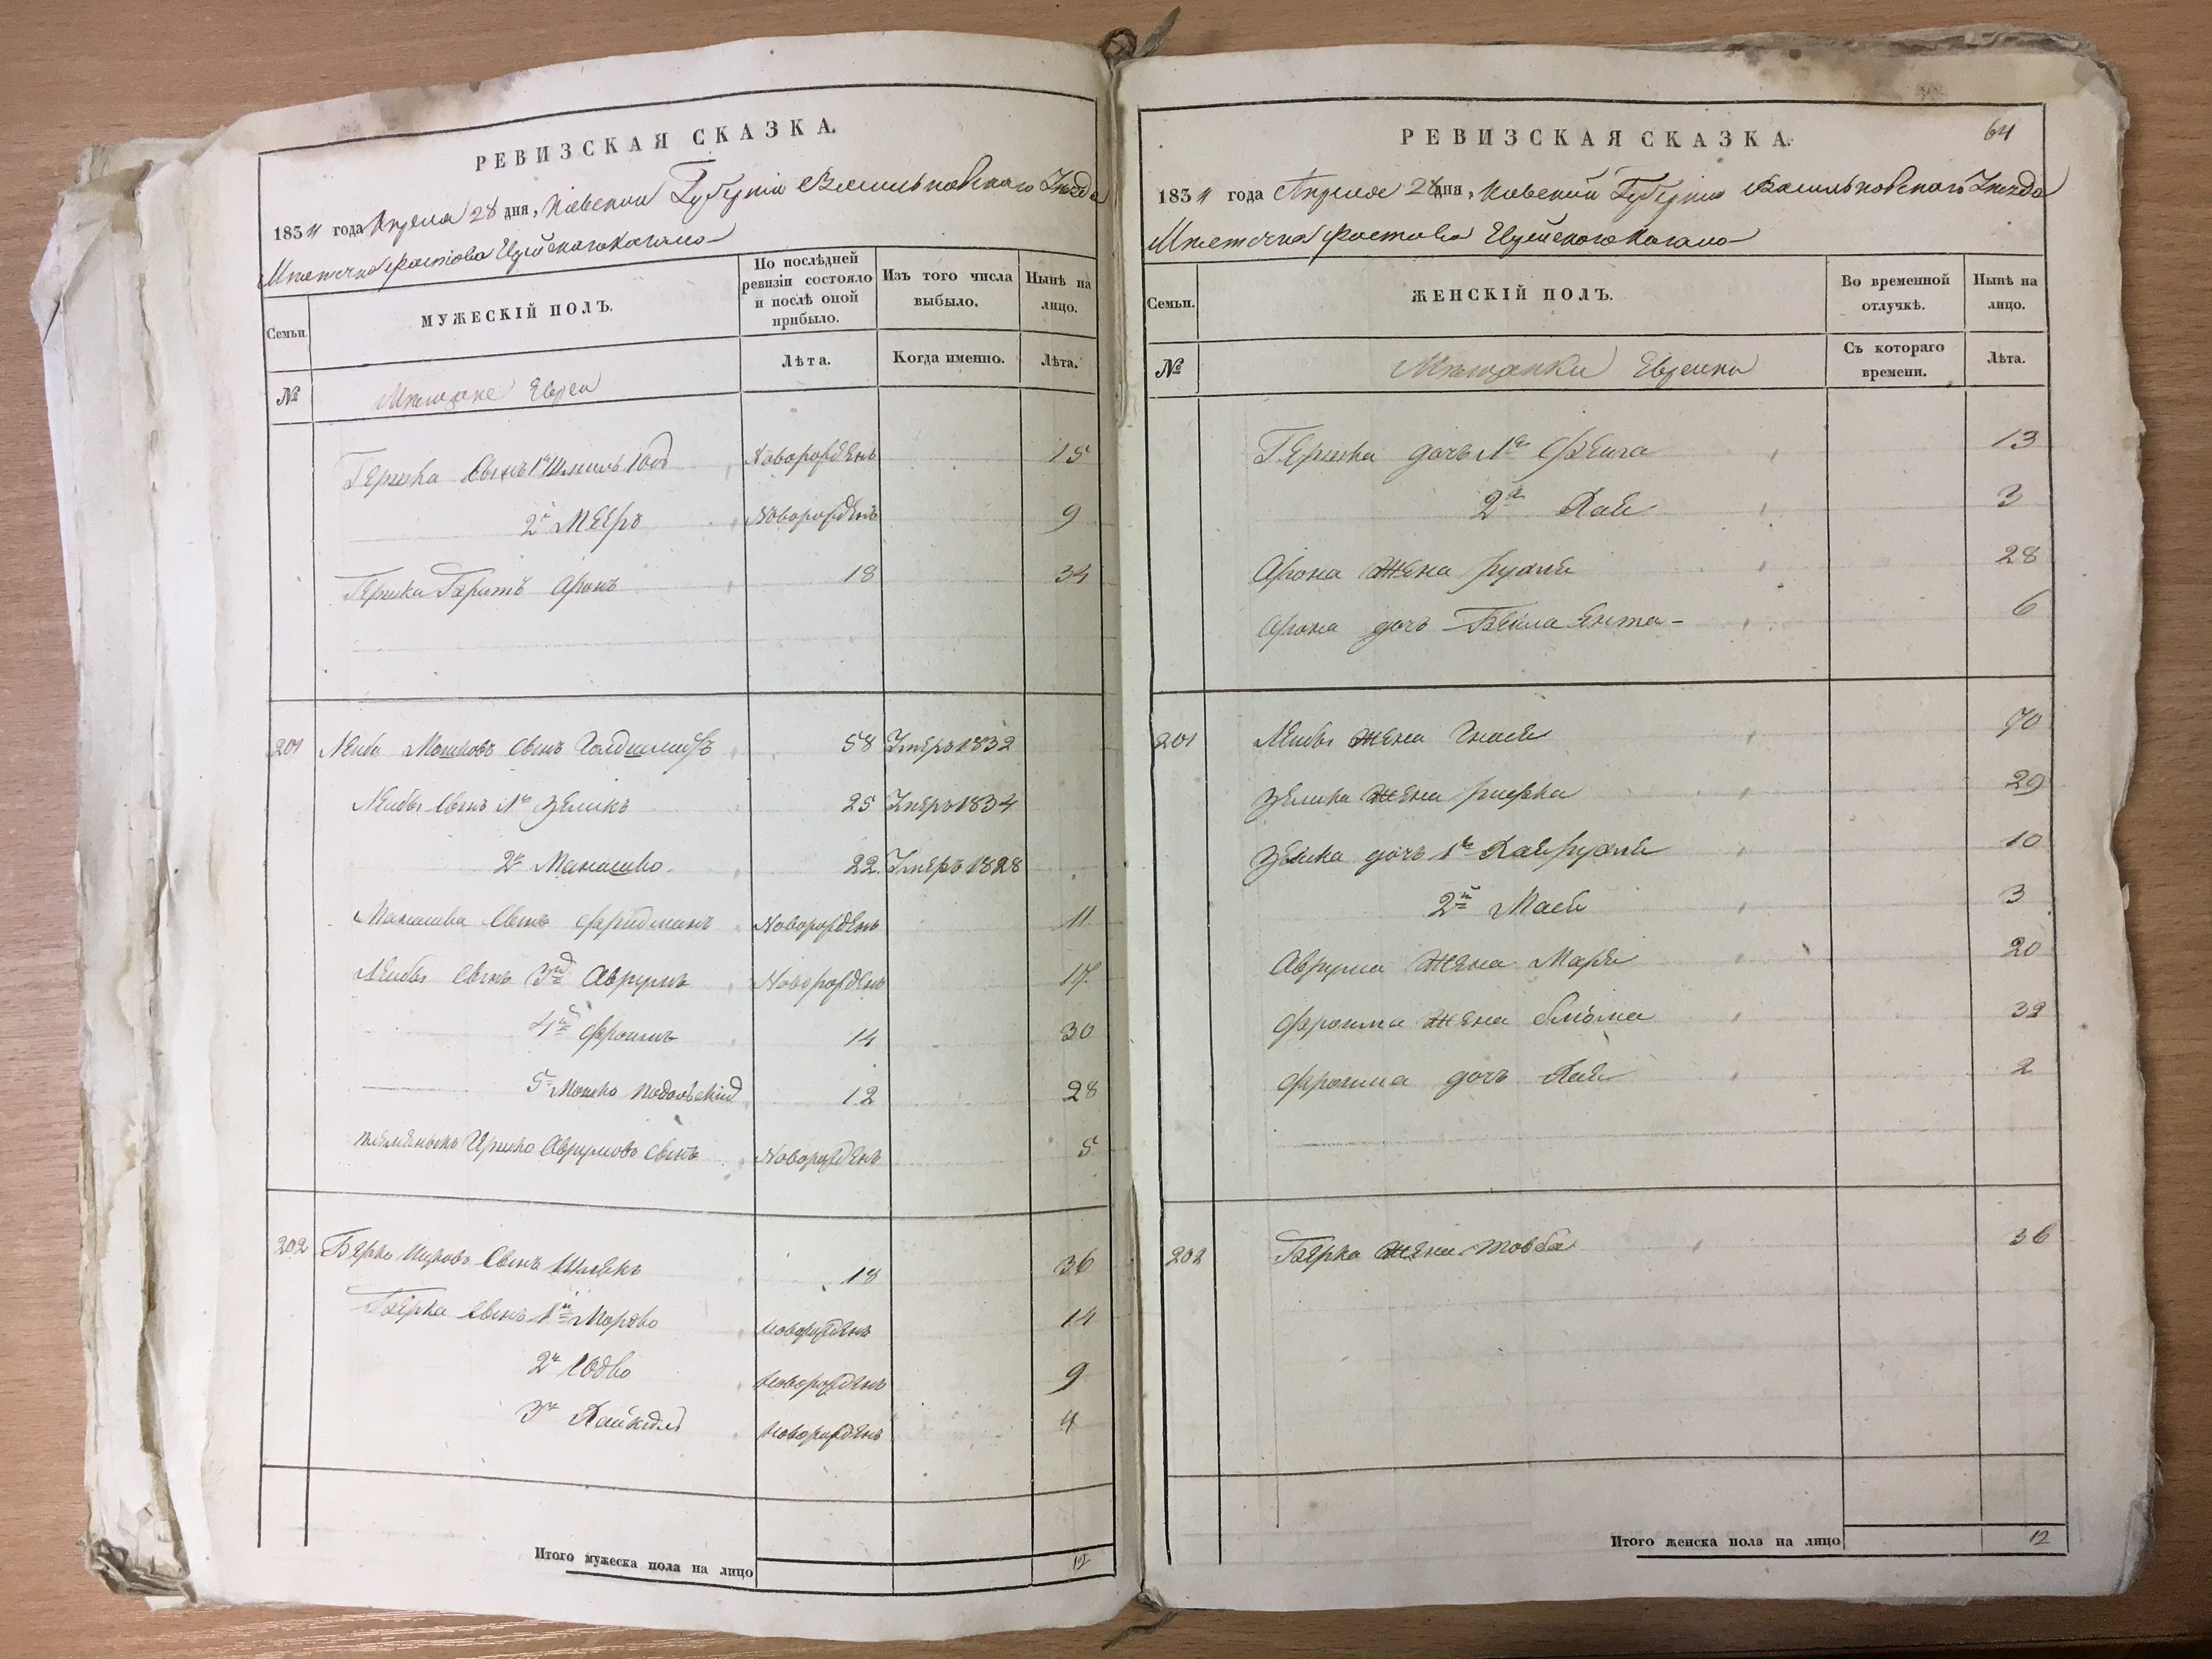 РЕВИЗСКАЯ СКАЗКА.
1834 года Апреля 28 дня, Киевской Губернии Васильковского Уезда
Местечка Фастова Еврейского Кагала
Семьи.
МУЖЕСКІЙ ПОЛЪ.
По послѣдней ревизіи состояло и послѣ оной прибыло.
Изъ того числа выбыло.
Нынѣ на лицо.
Лѣта.
Когда именно.
Лѣта.
№
Мещане Евреи
Гершка Сынъ 1й Шмиль Юод Новорожденъ 15
2й Мееръ Новорожденъ 9
Гершка Братъ Аронъ 18 34
201 Лейба Мошковъ Сынъ 58 Умеръ 1832
Лейбы Сынъ 1й Зеликъ 25 Умеръ 1834
2й Манашко 22 Умеръ 1828
Манашка Сынъ Фридманъ Новорожденъ 11
Лейбы Сынъ 3й Аврумъ Новорожденъ 17
4й Фроимъ 14 30
5й Мошко 12 28
Племяникъ Ицко Аврумовъ Сынъ Новорожденъ 5
202 Берко Ицковъ Сынъ 18 36
Берка Сынъ 1й Мортко новорожденъ 14
2й Юдко новорожденъ 9
3й новорожденъ 4
Итого мужеска пола на лицо 12
РЕВИЗСКАЯ СКАЗКА. 64
1834 года Апреля 28 дня, Киевской Губернии Васильковского Уезда
Местечка Фастова Еврейского Кагала
Семьи.
ЖЕНСКІЙ ПОЛЪ.
Во временной отлучкѣ.
Нынѣ на лицо.
№
Мещанки Еврейки
Съ котораго времени.
Лѣта.
Гершка дочь 1я Фейга 13
2я Хая 3
Арона Жена Рухля 28
Арона дочь Бейла Ента 6
201 Лейбы Жена Гнася 70
Зелика Жена Рифка 29
Зелика дочь 1я Хая Рухля 10
2я Мася 3
Аврума Жена Маря 20
Фроима Жена Блюма 32
Фроима дочь Хая 2
202 Берка Жена Товба 36
Итого женска пола на лицо 12